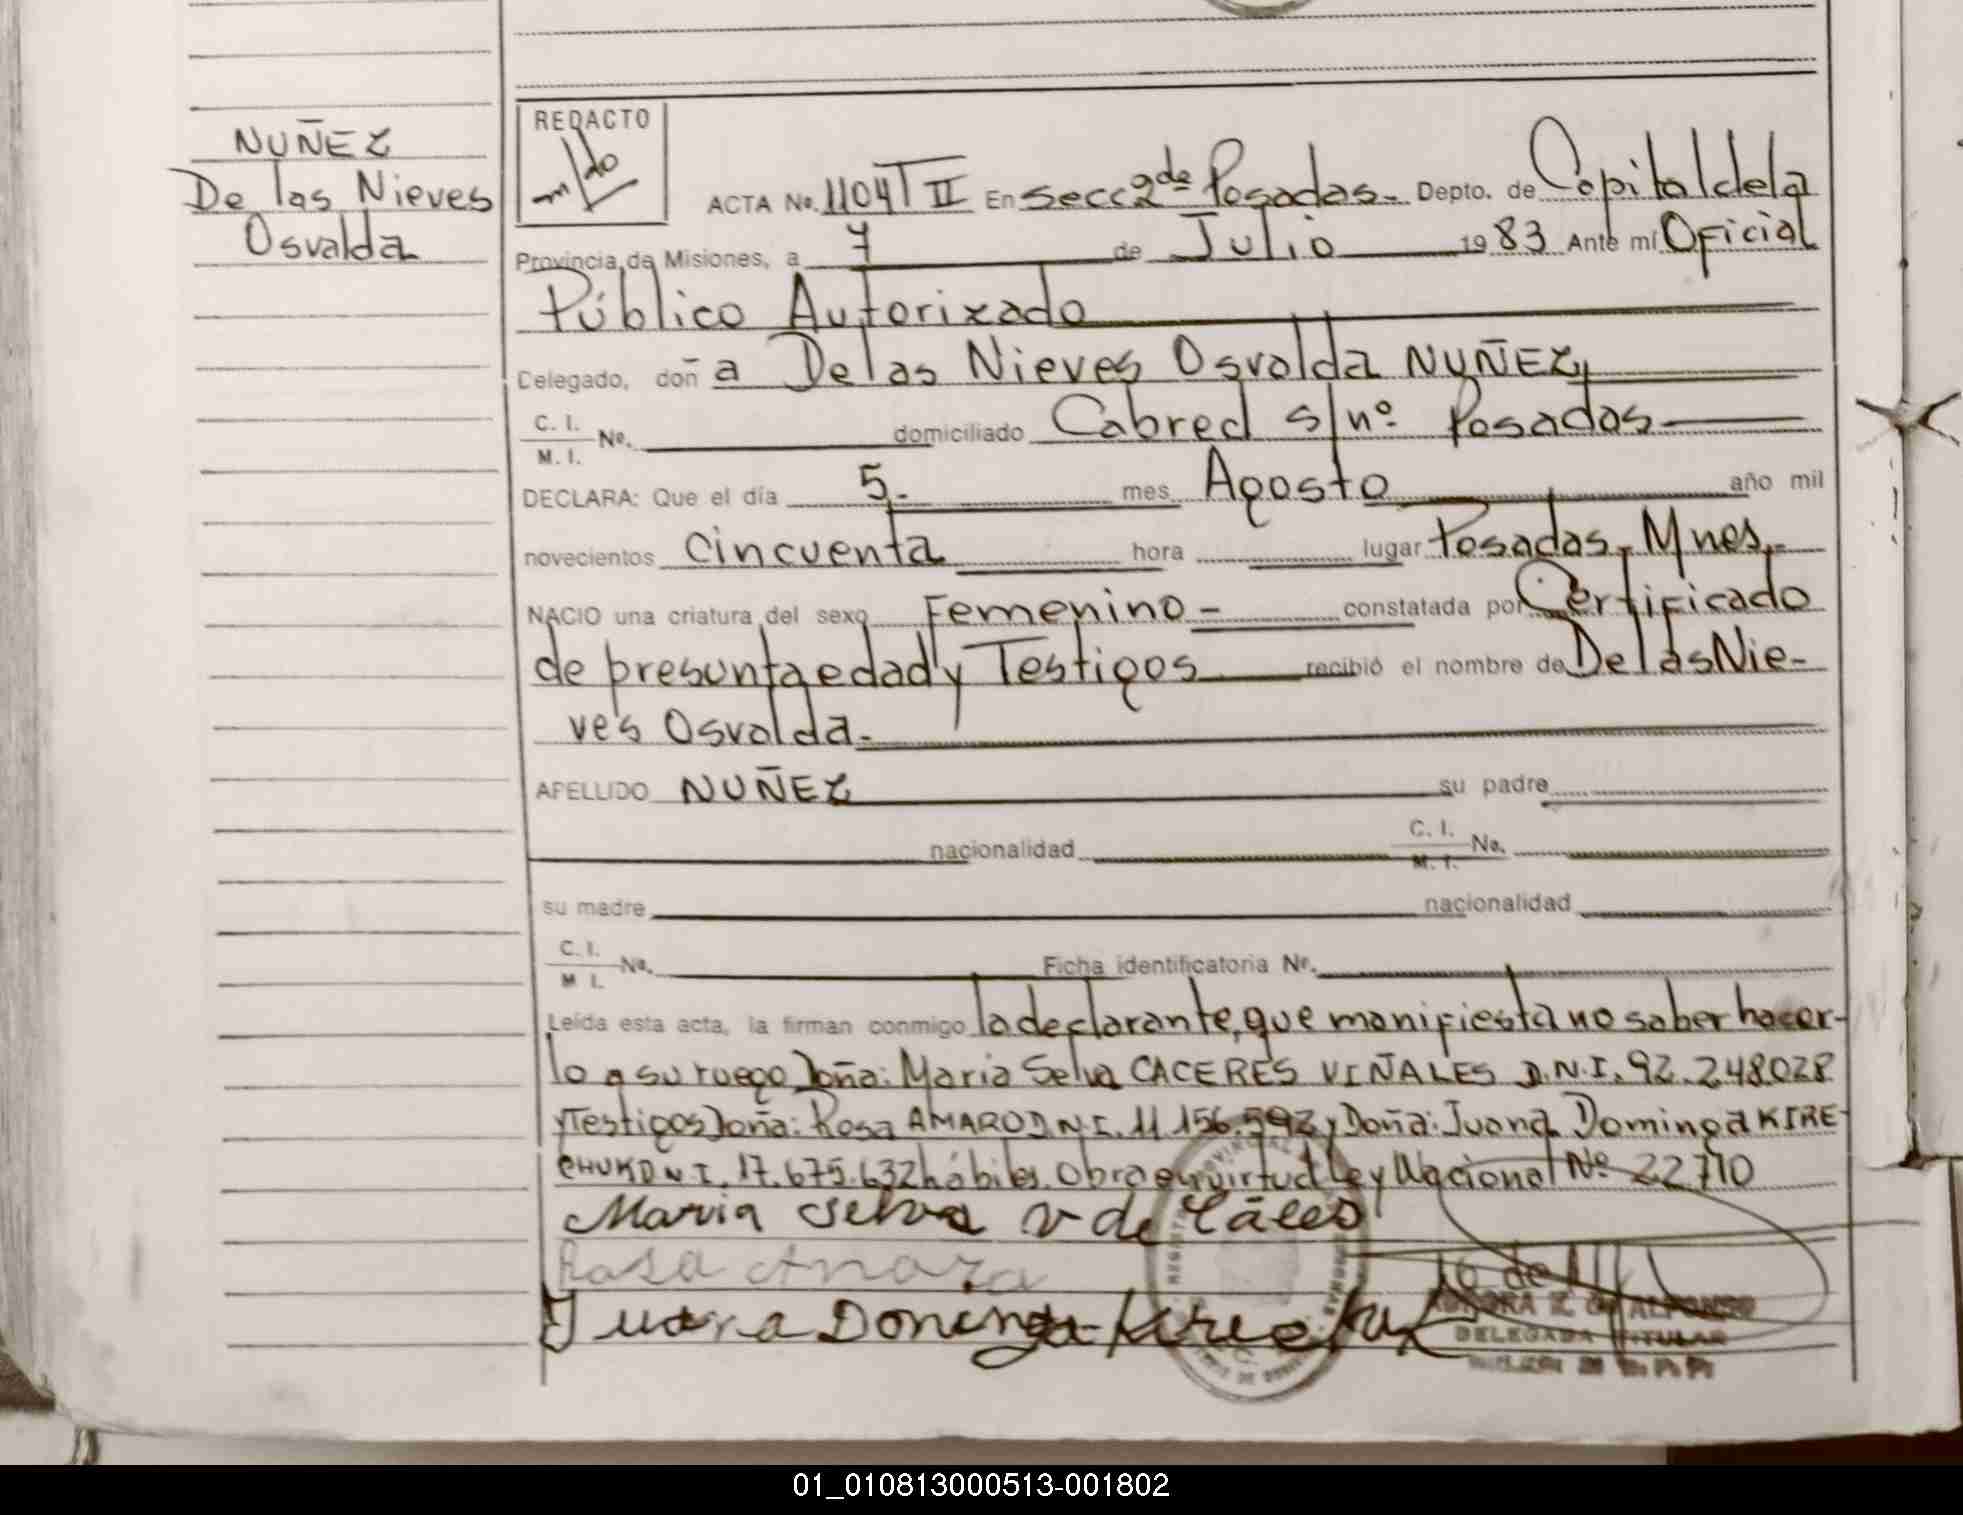 NUÑEZ
De las Nieves
Osvalda
REDACTO
ACTA No. 1104 T II En Secc 2da Posadas.- Depto. de Capital de la
Provincia de Misiones, a 7 de Julio 1983 Ante mí Oficial
Público Autorizado
Delegado, doñ a De las Nieves Osvalda NUÑEZ,
C. I.
M. I. No. domiciliado Cabred s/nº Posadas
DECLARA: Que el día 5.- mes Agosto año mil
novecientos cincuenta hora lugar Posadas, Mnes.-
NACIO una criatura del sexo Femenino - constatada por Certificado
de presunta edad y Testigos recibió el nombre de De las Nie-
ves Osvalda.-
APELLIDO NUÑEZ su padre
nacionalidad C. I. M. I. No.
su madre nacionalidad
C. I. M. I. No. Ficha identificatoria Nº.
Leída esta acta, la firman conmigo la declarante, que manifiesta no saber hacer-
lo a su ruego Doña: Maria Selva CACERES VIÑALES D.N.I. 92.248028
y Testigos Doña: Rosa AMARO D.N.I. 11.156.592 y Doña: Juana Dominga KIRE
CHUK D.N.I. 17.675.632 hábiles. Obra en virtud Ley Nacional Nº 22710
Maria Selva V de
Rosa Amaro
Juana Domenga Kirechuk
DELEGADA TITULAR
01_010813000513-001802